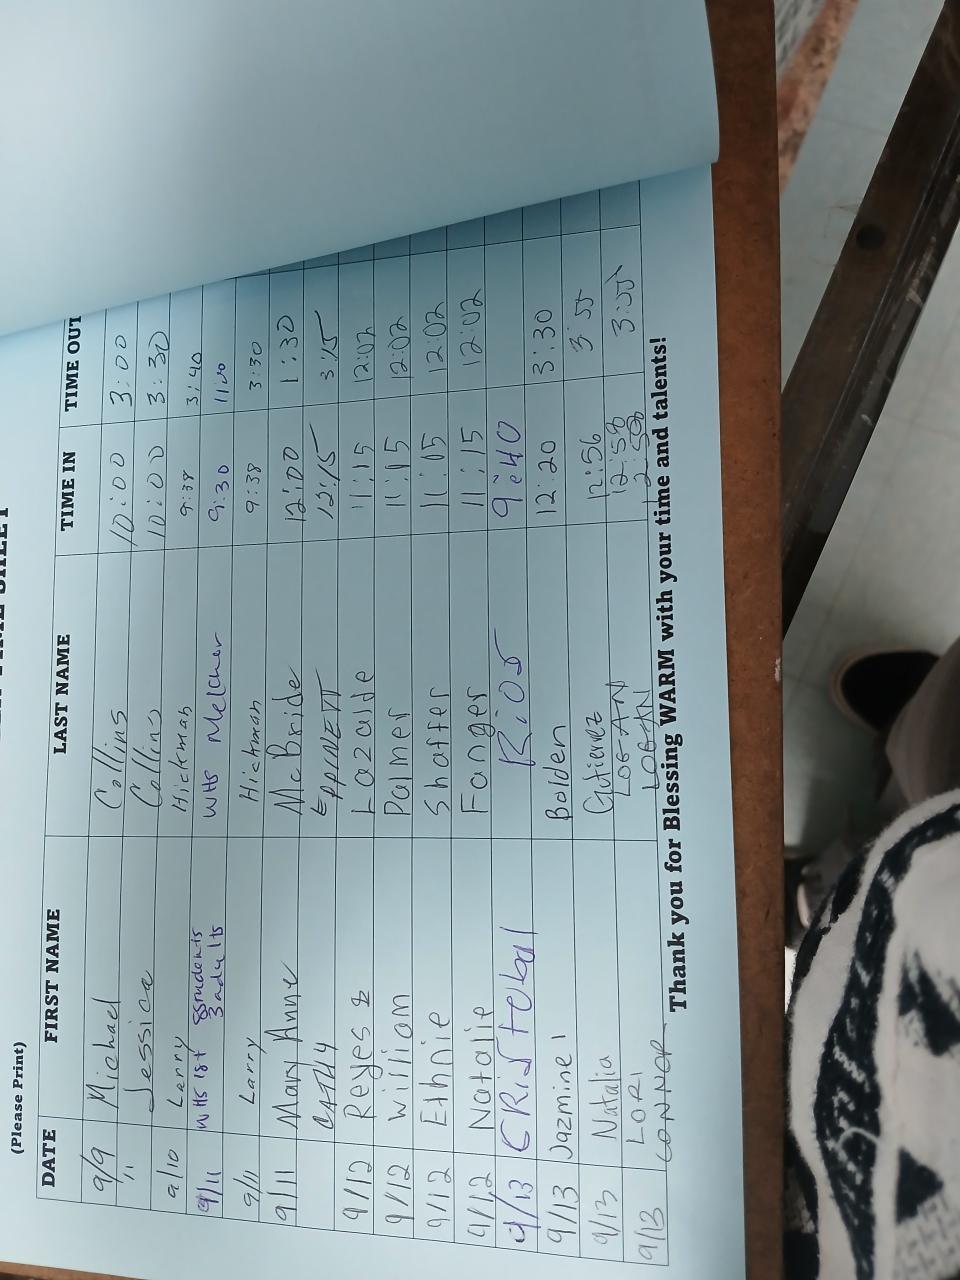 (Please Print)
DATE FIRST NAME LAST NAME TIME IN TIME OUT
9/9 Michael Collins 10:00 3:00
" Jessica Collins 10:00 3:30
9/10 Larry Hickman 9:38 3:40
9/11 WHS 1st 8 students 3 adults WHS Melchor 9:30 11:00
9/11 Larry Hickman 9:38 3:30
9/11 Mary Anne McBride 12:00 1:30
CATHY EppiNETT 12:15 3:15
9/12 Reyes & Lazalde 11:15 12:02
9/12 Willion Palmer 11:15 12:02
9/12 Ethnie Shaffer 11:05 12:02
9/12 Natalie Fanger 11:15 12:02
9/13 CRiSTobal RiOS 9:40
9/13 Jazmine Bolden 12:20 3:30
9/13 Natalia Gutierrez 12:56 3:55
9/13 LORI LOGAN 12:58 3:55
CONNOR LOGAN 12:58
Thank you for Blessing WARM with your time and talents!